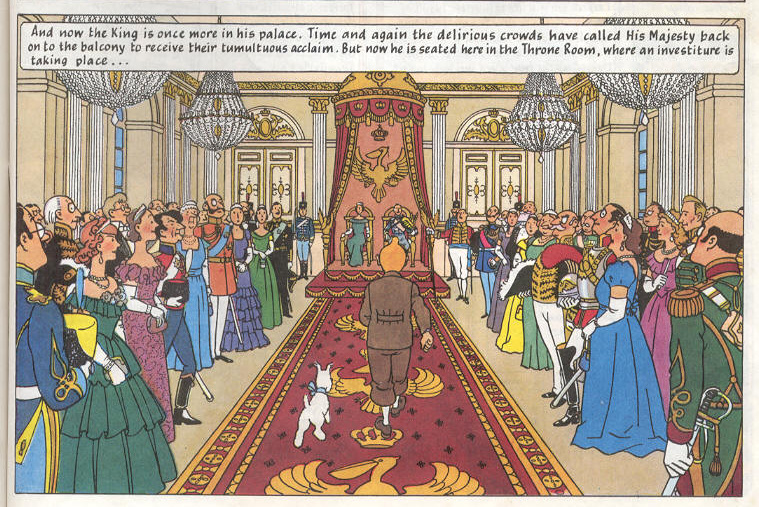 And now the King is once more in his palace. Time and again the delirious crowds have called His Majesty back
on to the balcony to receive their tumultuous acclaim. But now he is seated here in the Throne Room, where an investiture is
taking place...